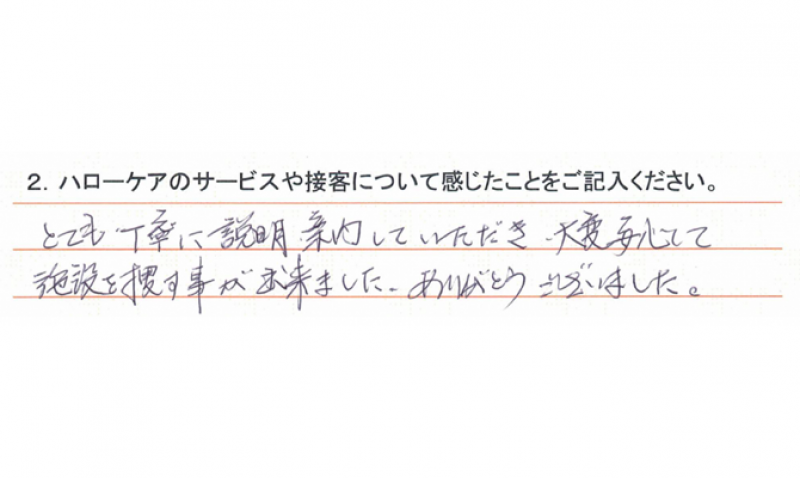 2. ハローケアのサービスや接客について感じたことをご記入ください。
とても丁寧に説明・案内していただき、大変安心して
施設を捜す事が出来ました。ありがとうございました。